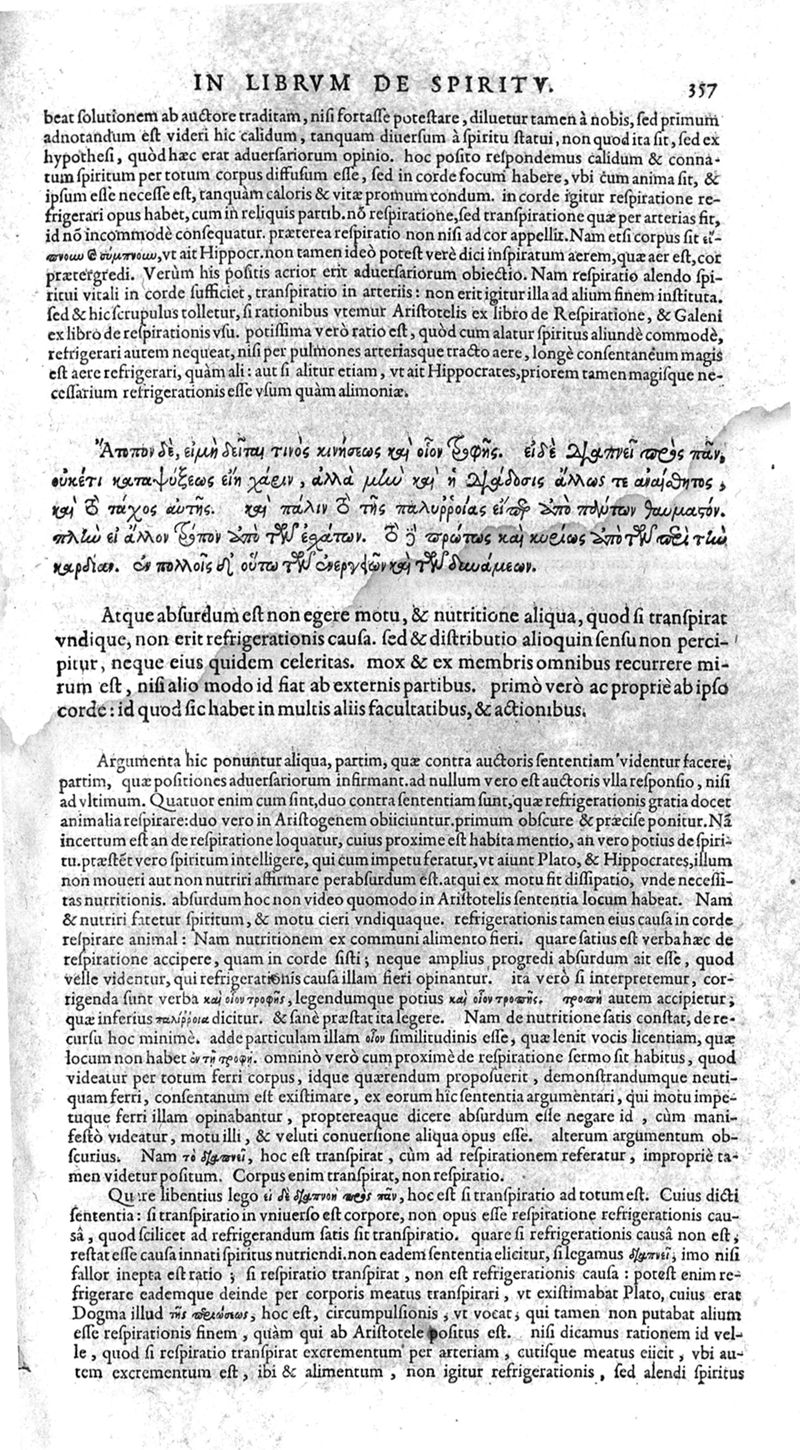 IN LIBRVM DE SPIRITV. 357
beat solutionem ab auctore traditam, nisi fortasse potestare, diluetur tamen à nobis, sed primum
adnotandum est videri hic calidum, tanquam diuersum à spiritu statui, non quod ita sit, sed ex
hypothesi, quòd hæc erat aduersariorum opinio. hoc posito respondemus calidum & conna-
tum spiritum per totum corpus diffusum esse, sed in corde focum habere, vbi cum anima sit, &
ipsum esse necesse est, tanquàm caloris & vitæ promum condum. in corde igitur respiratione re-
frigerari opus habet, cum in reliquis partib. nõ respiratione, sed transpiratione quæ per arterias fit,
id nõ incommodè consequatur. præterea respiratio non nisi ad cor appellit. Nam etsi corpus sit εἴ-
πνοιω & σύμπνοιω, vt ait Hippocr. non tamen ideò potest verè dici inspiratum aerem, quæ aer est, cor
prætergredi. Verùm his positis acrior erit aduersariorum obiectio. Nam respiratio alendo spi-
ritui vitali in corde sufficiet, transpiratio in arteriis: non erit igitur illa ad alium finem instituta.
sed & hic scrupulus tolletur, si rationibus vtemur Aristotelis ex libro de Respiratione, & Galeni
ex libro de respirationis vsu. potissima verò ratio est, quòd cum alatur spiritus aliundè commodè,
refrigerari autem nequeat, nisi per pulmones arteriasque tracto aere, longè consentaneum magis
est aere refrigerari, quàm ali: aut si alitur etiam, vt ait Hippocrates, priorem tamen magisque ne-
cessarium refrigerationis esse vsum quàm alimoniæ.
Ἄτοπον δὲ, εἰ μὴ δεῖται τινὸς κινήσεως καὶ οἷον τροφῆς. εἰ δὲ διαπνεῖ πρὸς πᾶν,
οὐκέτι καταψύξεως εἴη χάριν, ἀλλὰ μὴν καὶ ἡ διάδοσις ἄλλως τε ἀναίσθητος,
καὶ τὸ τάχος αὐτῆς. καὶ πάλιν τὸ τῆς παλυρροίας εἴπερ ἀπὸ πάντων θαυμαστόν.
πλὴν εἰ ἄλλον τρόπον ἀπὸ τῶν ἐσχάτων. τὸ δὲ πρώτως καὶ κυρίως ἀπὸ τῶν περὶ τὴν
καρδίαν. ἐν πολλοῖς δὲ οὕτω τῶν ἐνεργειῶν καὶ τῶν δυνάμεων.
Atque absurdum est non egere motu, & nutritione aliqua, quod si transpirat
vndique, non erit refrigerationis causa. sed & distributio alioquin sensu non perci-
pitur, neque eius quidem celeritas. mox & ex membris omnibus recurrere mi-
rum est, nisi alio modo id fiat ab externis partibus. primò verò ac propriè ab ipso
corde: id quod sic habet in multis aliis facultatibus, & actionibus.
Argumenta hic ponuntur aliqua, partim, quæ contra auctoris sententiam videntur facere,
partim, quæ positiones aduersariorum infirmant. ad nullum vero est auctoris vlla responsio, nisi
ad vltimum. Quatuor enim cum sint, duo contra sententiam sunt, quæ refrigerationis gratia docet
animalia respirare: duo vero in Aristogenem obiiciuntur. primum obscure & præcise ponitur. Nã
incertum est an de respiratione loquatur, cuius proxime est habita mentio, an vero potius de spiri-
tu. præstēt vero spiritum intelligere, qui cum impetu feratur, vt aiunt Plato, & Hippocrates, illum
non moueri aut non nutriri affirmare perabsurdum est. atqui ex motu fit dissipatio, vnde necessi-
tas nutritionis. absurdum hoc non video quomodo in Aristotelis sententia locum habeat. Nam
& nutriri fatetur spiritum, & motu cieri vndiquaque. refrigerationis tamen eius causa in corde
respirare animal: Nam nutritionem ex communi alimento fieri. quare satius est verba hæc de
respiratione accipere, quam in corde sisti; neque amplius progredi absurdum ait esse, quod
velle videntur, qui refrigerationis causa illam fieri opinantur. ita verò si interpretemur, cor-
rigenda sunt verba καὶ οἷον τροφῆς, legendumque potius καὶ οἷον τροπῆς. τροπὴ autem accipietur;
quæ inferius παλίρροια dicitur. & sanè præstat ita legere. Nam de nutritione satis constat, de re-
cursu hoc minimè. adde particulam illam οἷον similitudinis esse, quæ lenit vocis licentiam, quæ
locum non habet ἐν τῇ τροφῇ. omninò verò cum proximè de respiratione sermo sit habitus, quod
videatur per totum ferri corpus, idque quærendum proposuerit, demonstrandumque neuti-
quam ferri, consentanum est existimare, ex eorum hic sententia argumentari, qui motu impe-
tuque ferri illam opinabantur, proptereaque dicere absurdum esse negare id, cùm mani-
festò videatur, motu illi, & veluti conuersione aliqua opus esse. alterum argumentum ob-
scurius. Nam τὸ διαπνεῖ, hoc est transpirat, cùm ad respirationem referatur, impropriè ta-
men videtur positum. Corpus enim transpirat, non respiratio.
Quare libentius lego εἰ δὲ διαπνοὴ πρὸς πᾶν, hoc est si transpiratio ad totum est. Cuius dicti
sententia: si transpiratio in vniuerso est corpore, non opus esse respiratione refrigerationis cau-
sâ, quod scilicet ad refrigerandum satis sit transpiratio. quare si refrigerationis causâ non est,
restat esse causa innati spiritus nutriendi. non eadem sententia elicitur, si legamus διαπνεῖ, imo nisi
fallor inepta est ratio; si respiratio transpirat, non est refrigerationis causa: potest enim re-
frigerare eademque deinde per corporis meatus transpirari, vt existimabat Plato, cuius erat
Dogma illud τῆς περιώσεως, hoc est, circumpulsionis, vt vocat, qui tamen non putabat alium
esse respirationis finem, quàm qui ab Aristotele positus est. nisi dicamus rationem id vel-
le, quod si respiratio transpirat excrementum per arteriam, cutisque meatus eiicit, vbi au-
tem excrementum est, ibi & alimentum, non igitur refrigerationis, sed alendi spiritus